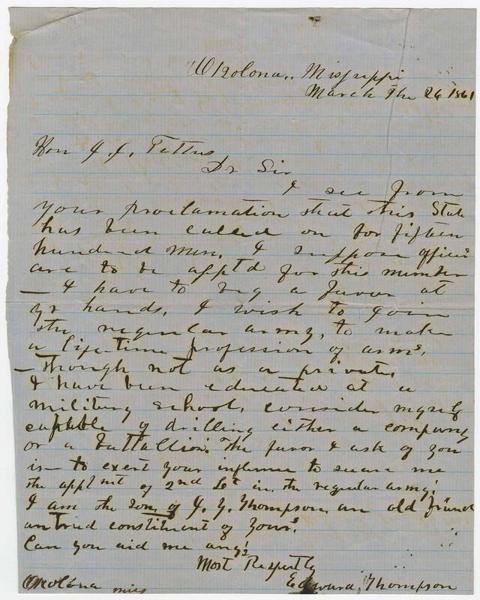 Okolona, Missippi
March the 26 1861
Hon J. J. Pettus
Dr Sir
I see from
your proclamation that this State
has been called on for fifteen
hundred men. I suppose officers
are to be appt'd for this number
– I have to beg a favor at
yr hands. I wish to join
the regular army, to make
a life-time profession of arms,
– though not as a private.
I have been educated at a
military school, consider myself
capable of drilling either a company
or a battallion. The favor I ask of you
is – to exert your influence to secure me
the appt'mt of 2nd Lt in the regular army.
I am the son of J. Y. Thompson, an old friend
constituent of yours.
Can you aid me any?
Most Respectly
Edward Thompson
Okolona miss